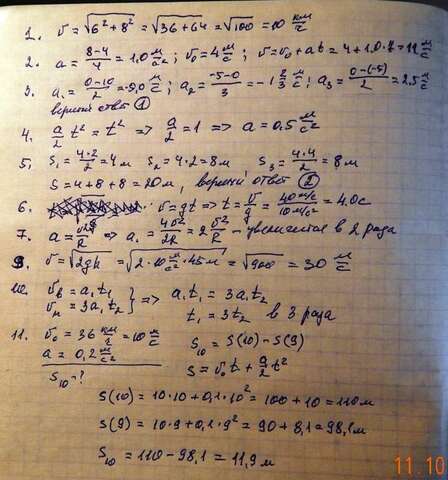 1. v = √6² + 8² = √36 + 64 = √100 = 10 км/с
2. a = 8-4/4 = 1.0 м/с²; v₀ = 4 м/с; v = v₀ + at = 4 + 1.0·7 = 11 м/с
3. a₁ = 0-10/2 = -5,0 м/с; a₂ = -5-0/3 = -1 2/3 м/с; a₃ = 0-(-5)/2 = 2,5 м/с
верный ответ ①
4. a/2 t² = t² => a/2 = 1 => a = 0.5 м/с²
5. S₁ = 4·2/2 = 4 м S₂ = 4·2 = 8 м S₃ = 4·4/2 = 8 м
S = 4 + 8 + 8 = 20 м, верный ответ ②
6. v = gt => t = v/g = 40 м/с/10 м/с² = 4.0 с
7. a = v²/R => a₁ = 4v²/2R = 2 v²/R - увеличится в 2 раза
9. v = √2gh = √2·10 м/с²·45 м = √900 = 30 м/с
10. v_в = a₁t₁
v_м = 3a₁t₂ } => a₁t₁ = 3a₁t₂
t₁ = 3t₂ в 3 раза
11. v₀ = 36 км/ч = 10 м/с
a = 0,2 м/с²
S₁₀ - ?
S₁₀ = S(10) - S(9)
S = v₀t + a/2 t²
S(10) = 10·10 + 0,1·10² = 100 + 10 = 110 м
S(9) = 10·9 + 0,1·9² = 90 + 8,1 = 98,1 м
S₁₀ = 110 - 98,1 = 11,9 м
11.10